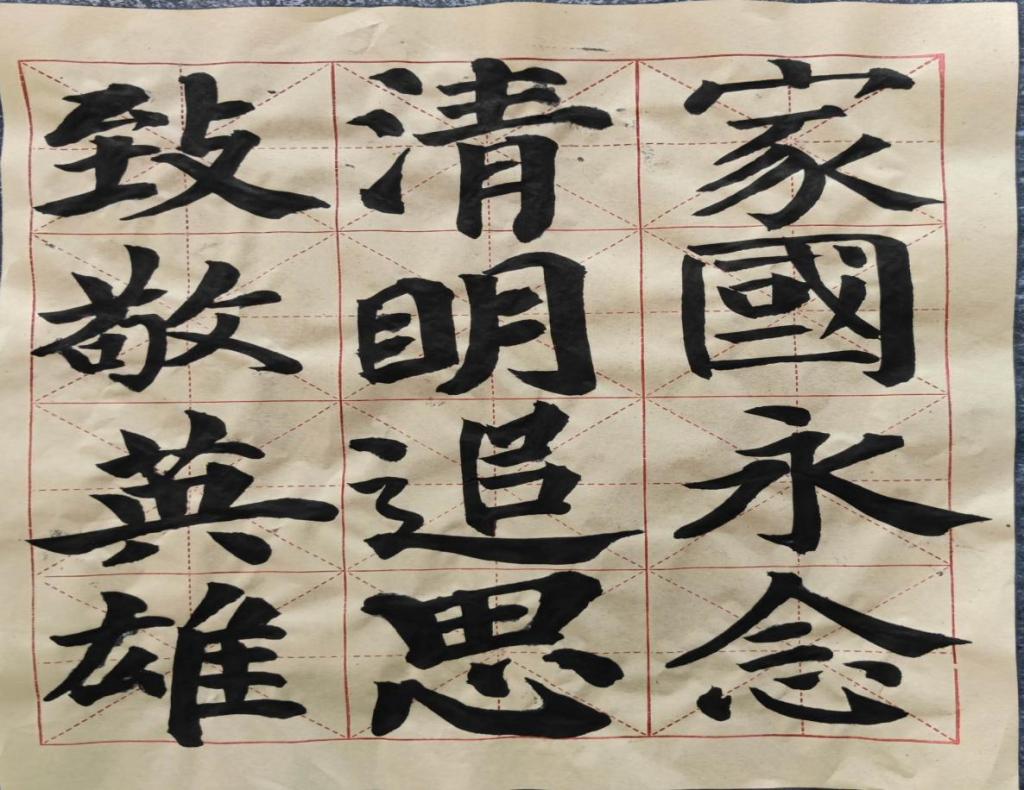 家國永念
清明追思
致敬英雄